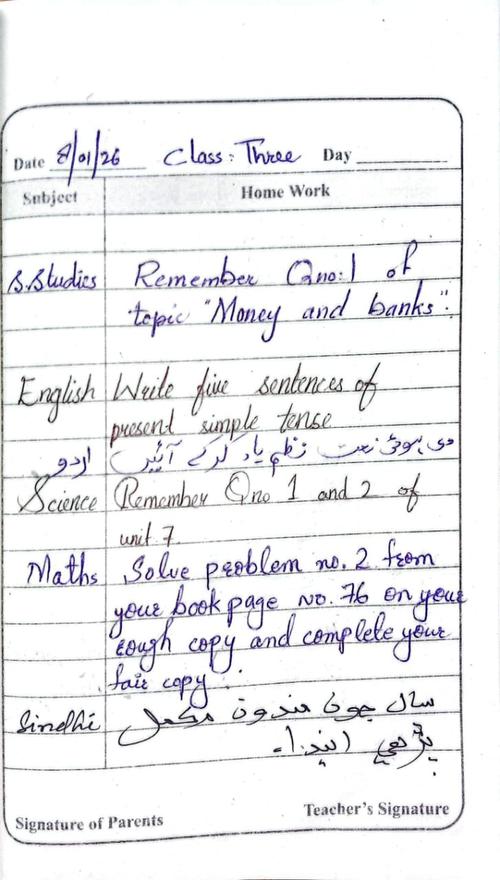 Date 8/01/26 Class: Three Day
Subject Home Work
S.Studies Remember Qno:1 of
topic "Money and banks".
English Write five sentences of
present simple tense
اردو دی ہوئی نعت نظم یاد کرکے آئیں
Science Remember Qno 1 and 2 of
unit 7.
Maths Solve problem no. 2 from
your book page no. 76 on your
rough copy and complete your
fair copy.
Sindhi سال جون مندون مڪمل
پڙهي ايندا.
Signature of Parents Teacher's Signature